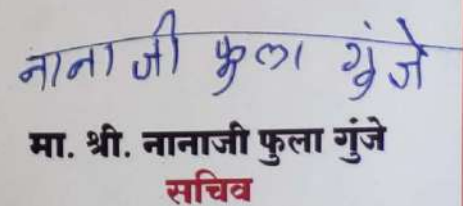 नानाजी फुला गुंजे
मा. श्री. नानाजी फुला गुंजे
सचिव